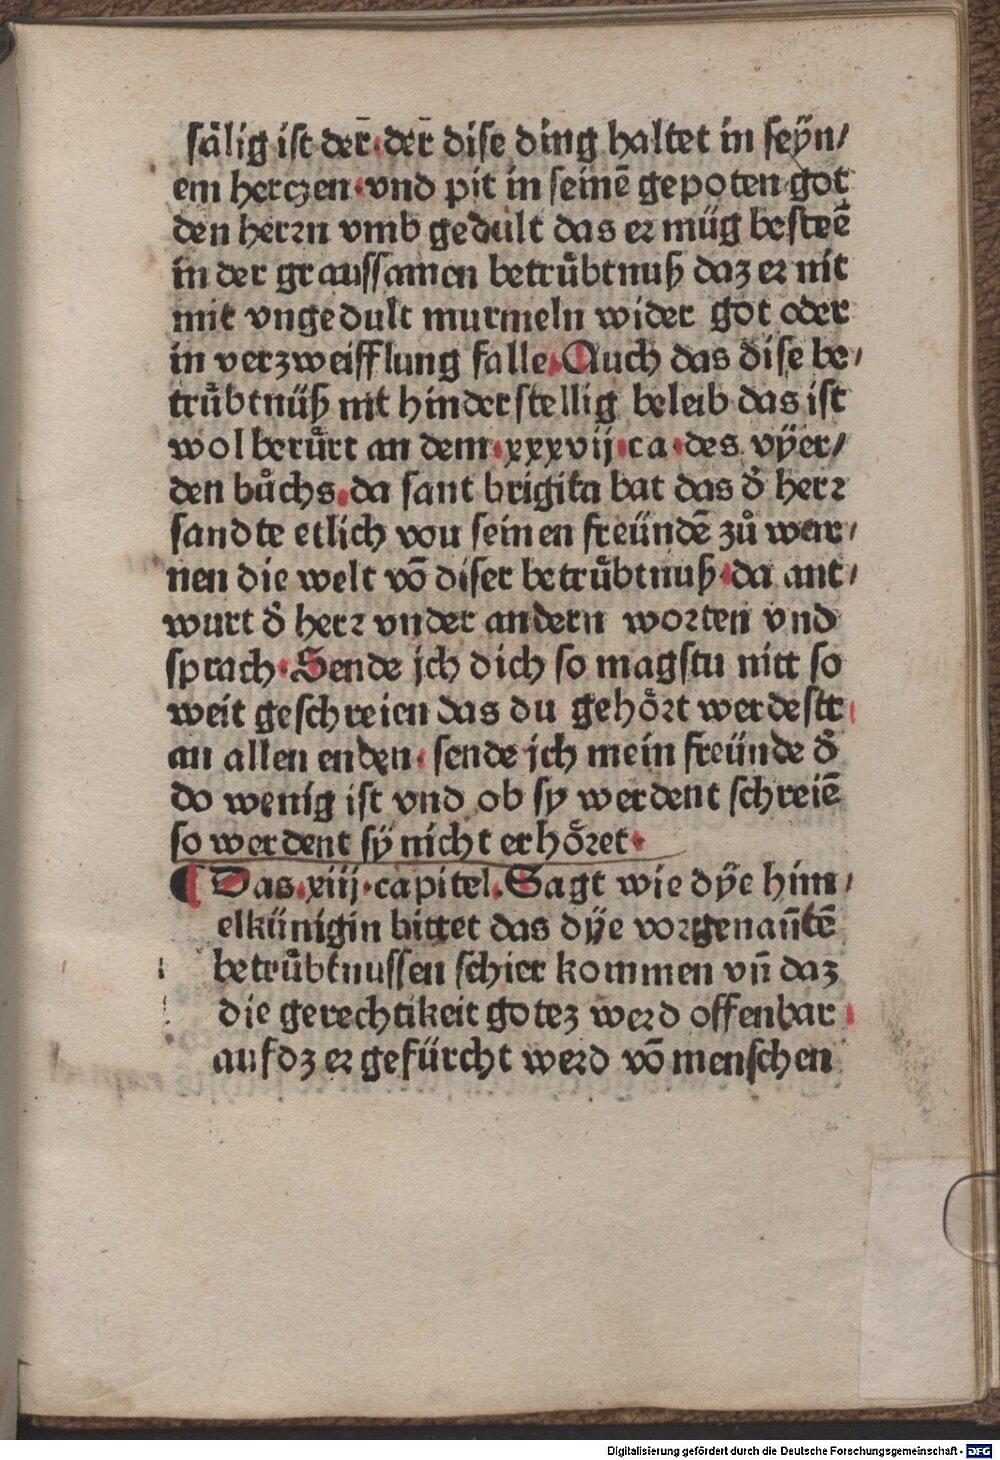 sålig ist der̄·der̄ dise ding haltet in seÿn/
em herczen·vnd pit in seinē gepoten got
den herrn vmb gedult das er müg besteē
in der graussamen betrůbtnuß daz er nit
mit vngedult murmeln wider got oder
in verzweifflung falle. Auch das dise be/
trůbtnüß nit hinderstellig beleib das ist
wol berůrt an dem·xxxvij·ca·des vÿer/
den bůchs.da sant brigita bat das d̄ herr
sandte etlich vou seinen freündē zů war/
nen die welt vō diser betrůbtnuß·da ant/
wurt d̄ herr vnder andern worten vnd
sprach·Sende jch dich so magstu nitt so
weit geschreien das du gehȯrt werdestt
an allen enden·sende jch mein freünde d̄
do wenig ist vnd ob sy werdent schreiē
so werdent sÿ nicht erhȯret·
¶ Das·xiij·capitel.Sagt wie dÿe him/
elkünigin bittet das dÿe vorgenan̄tē
betrůbtnussen schier kommen vn̄ daz
die gerechtikeit gotez werd offenbar
auf dz er gefürcht werd vō menschen
Digitalisierung gefördert durch die Deutsche Forschungsgemeinschaft - DFG